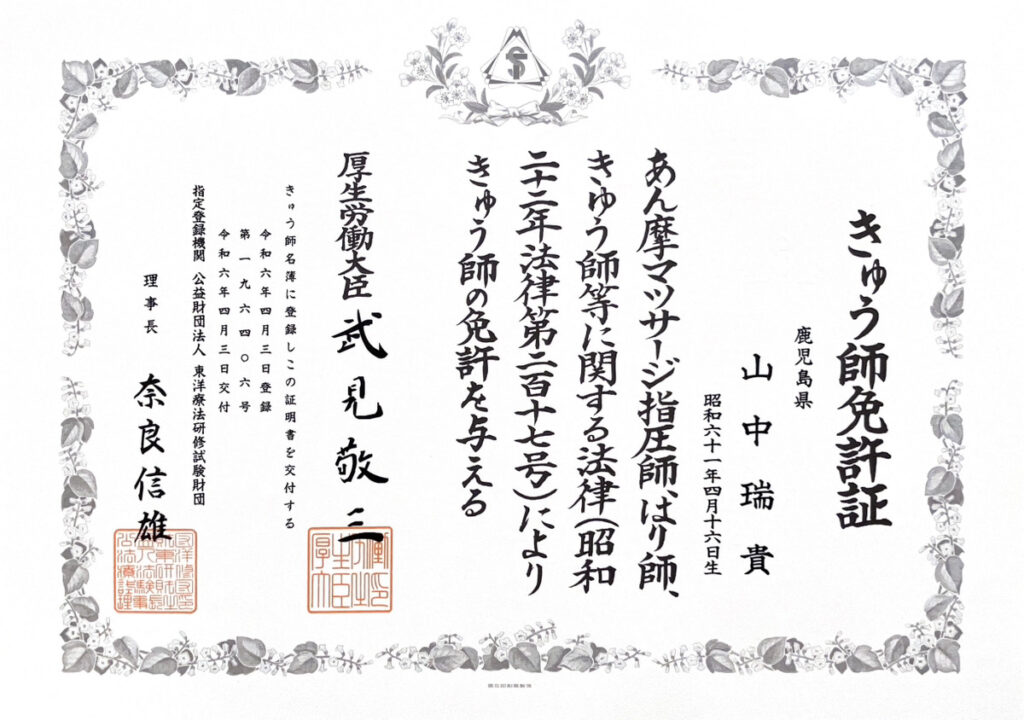 きゅう師免許証
鹿児島県
山中瑞貴
昭和六十一年四月十六日生
あん摩マツサージ指圧師、はり師、
きゆう師等に関する法律（昭和
二十二年法律第二百十七号）により
きゅう師の免許を与える
厚生労働大臣 武見敬三
きゅう師名簿に登録しこの証明書を交付する
令和六年四月三日登録
第一九六四〇六号
令和六年四月三日交付
指定登録機関 公益財団法人 東洋療法研修試験財団
理事長 奈良信雄